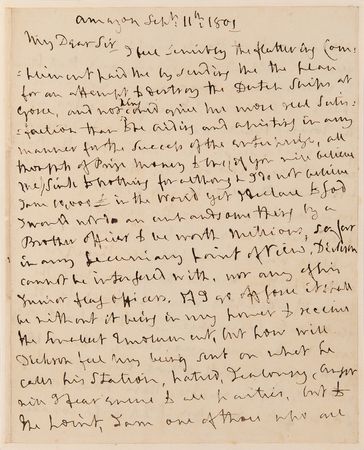 Amazon Sept: 11th: 1801
My Dear Sir
I feel sensibly the flattering Com=
=pliment paid me by sending me the plan
for an attempt to destroy the Dutch Ships at
Goree, and nothing could give me more real Satis=
=faction than the aiding and assisting in any
manner for the success of the enterprize, all
thought of Prize Money to me, (if you will believe
me) sinks to nothing for although I do not believe
I am 10,000£ in the World yet I declare to God
I would not do an unhandsome thing by a
Brother officer to be worth Millions, so far
in any Pecuniary point of View, Dickson
cannot be interfered with, nor any of his
Junior flag officers. If I go off Goree it shall
be without it being in my power to receive
the smallest Emolument, but how will
Dickson feel my being sent on what he
calls his Station, hatred, Jealousy,
will I fear ensue to all parties, but to
the point, I am one of those who are